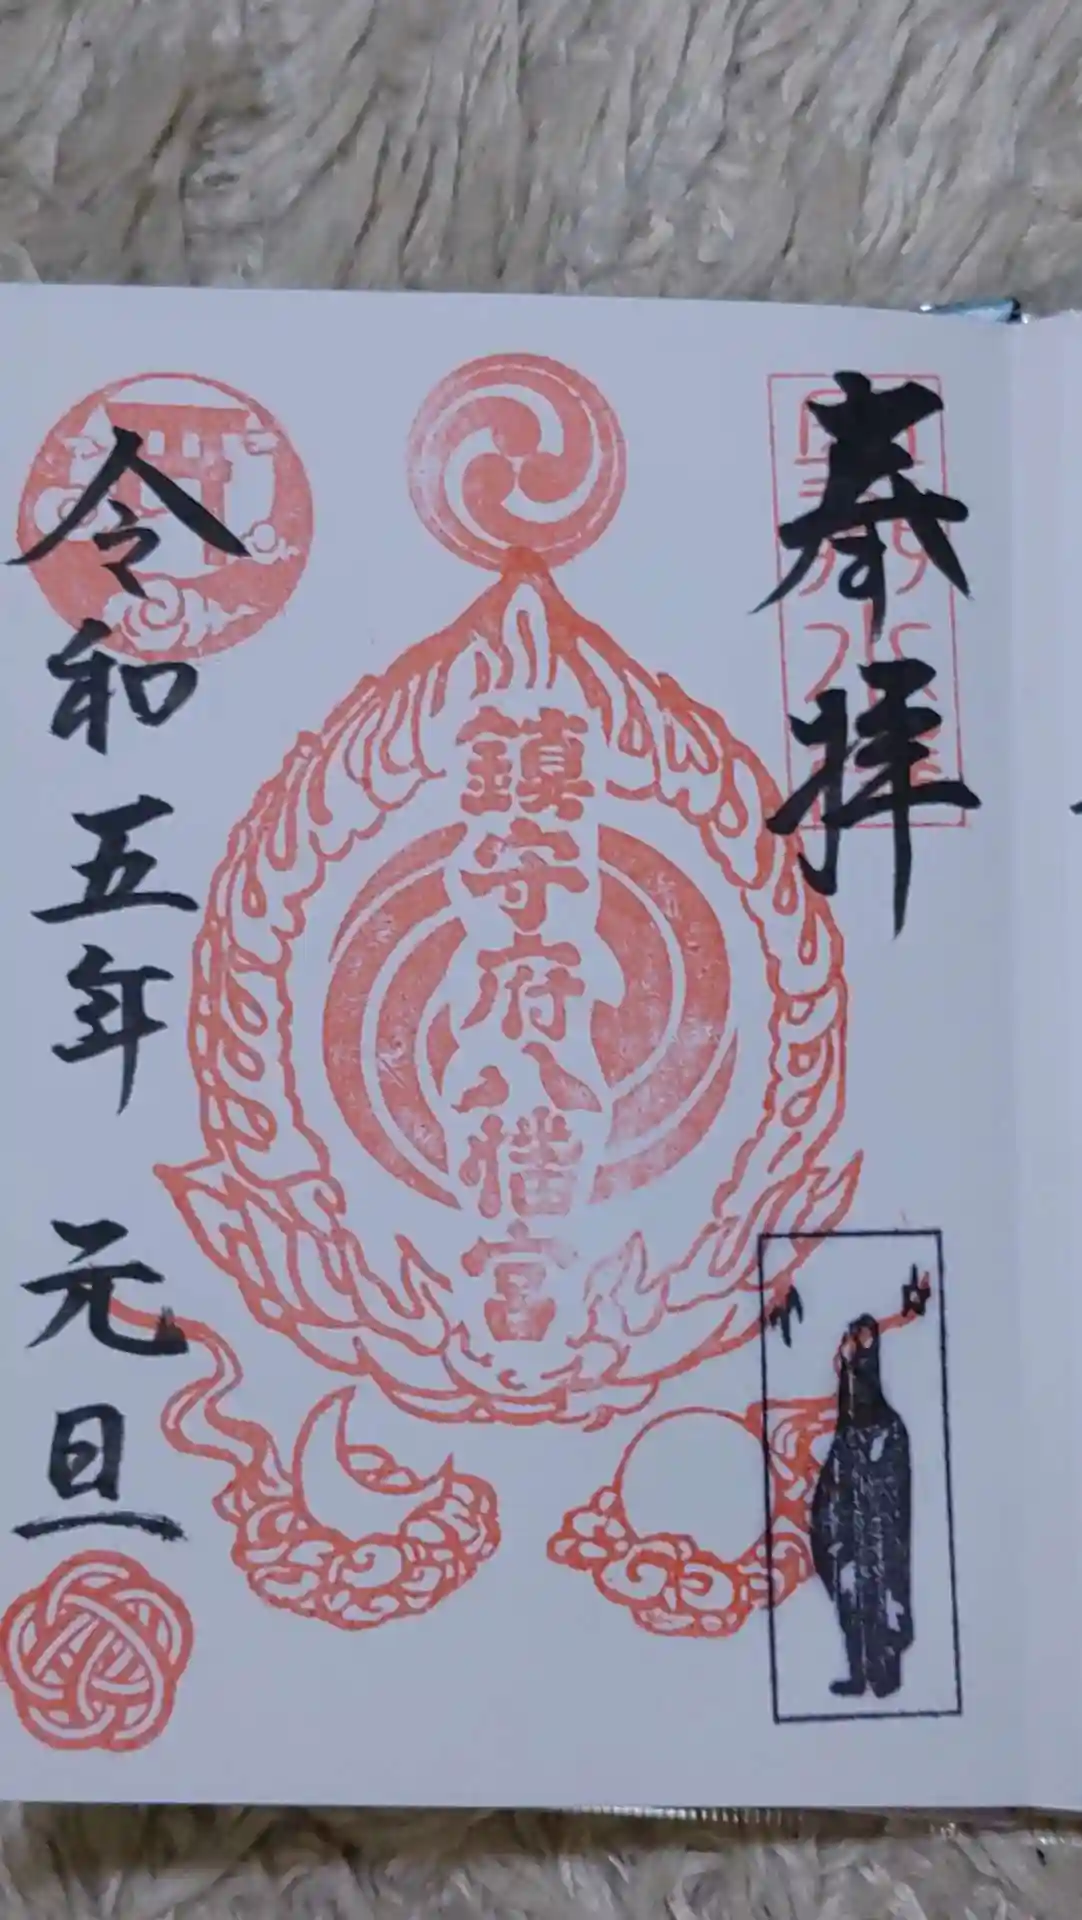 奉拝
鎮守府八幡宮
令和五年 元旦